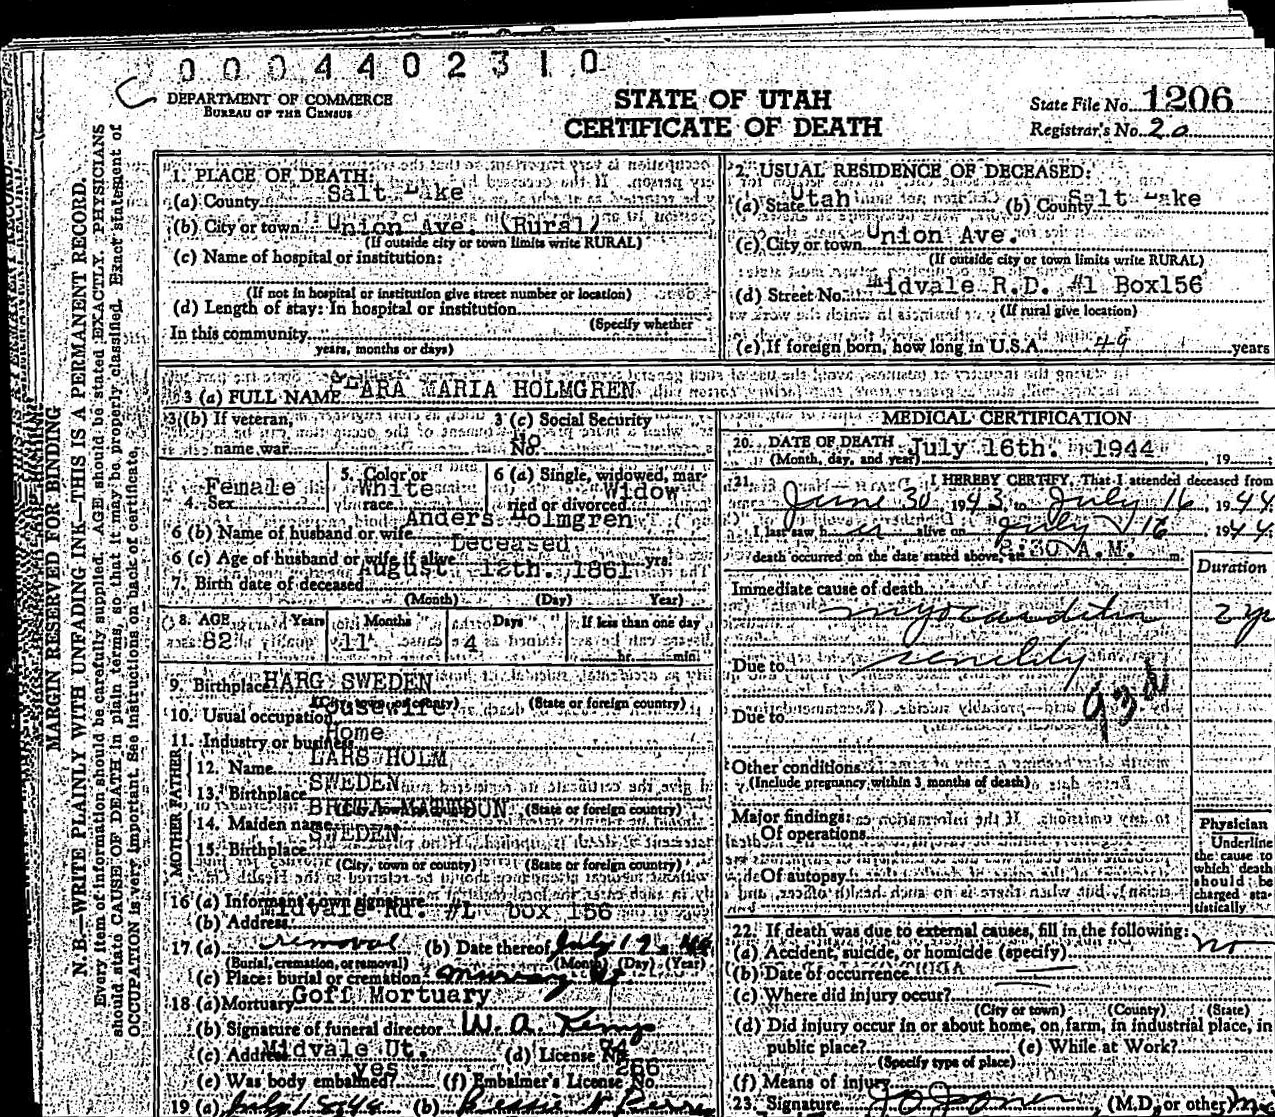 0 0 0 4 4 0 2 3 1 0
DEPARTMENT OF COMMERCE
BUREAU OF THE CENSUS
STATE OF UTAH
CERTIFICATE OF DEATH
State File No. 1206
Registrar's No. 20
MARGIN RESERVED FOR BINDING
N. B.—WRITE PLAINLY WITH UNFADING INK—THIS IS A PERMANENT RECORD.
Every item of information should be carefully supplied. AGE should be stated EXACTLY. PHYSICIANS
should state CAUSE OF DEATH in plain terms, so that it may be properly classified. Exact statement of
OCCUPATION is very important. See instructions on back of certificate.
1. PLACE OF DEATH:
(a) County Salt Lake
(b) City or town Union Ave. (Rural)
(If outside city or town limits write RURAL)
(c) Name of hospital or institution:
(If not in hospital or institution give street number or location)
(d) Length of stay: In hospital or institution
(Specify whether
In this community
years, months or days)
2. USUAL RESIDENCE OF DECEASED:
(a) State Utah (b) County Salt Lake
(c) City or town Union Ave.
(If outside city or town limits write RURAL)
(d) Street No. Midvale R.D. #1 Box156
(If rural give location)
(e) If foreign born, how long in U.S.A. 49 years
3 (a) FULL NAME CLARA MARIA HOLMGREN
3 (b) If veteran,
name war
3 (c) Social Security
No. No
4. Sex Female
5. Color or race White
6 (a) Single, widowed, married or divorced Widow
6 (b) Name of husband or wife Anders Holmgren
6 (c) Age of husband or wife if alive Deceased yrs.
7. Birth date of deceased August 12th. 1861
(Month) (Day) Year)
8. AGE Years Months Days If less than one day
82 11 4 hr. min.
9. Birthplace HARG SWEDEN
(City, town or county) (State or foreign country)
10. Usual occupation Housewife
11. Industry or business Home
FATHER
12. Name LARS HOLM
13. Birthplace SWEDEN
(State or foreign country)
MOTHER
14. Maiden name BRITTA
15. Birthplace SWEDEN
(City, town or county) (State or foreign country)
16 (a) Informant's own signature
(b) Address Midvale Rd. #1 box 156
17 (a) removal (b) Date thereof July
(Burial, cremation, or removal) (Month) (Day) (Year)
(c) Place: burial or cremation Murray Ut.
18 (a) Mortuary Goff Mortuary
(b) Signature of funeral director W. A. Kemp
(c) Address Midvale Ut. (d) License No.
(e) Was body embalmed? yes (f) Embalmer's License No.
19 (a) July (b)
MEDICAL CERTIFICATION
20. DATE OF DEATH July 16th. 1944, 19
(Month, day, and year)
21. I HEREBY CERTIFY, That I attended deceased from
June 30 1943, to July 16, 1944
I last saw her alive on July 16 1944
death occurred on the date stated above, at 8:30 A.M. m
Duration
Immediate cause of death
myocarditis 2 yr
Due to senility
93d
Due to
Other conditions
(Include pregnancy within 3 months of death)
Major findings:
Of operations
Of autopsy
Physician
Underline
the cause to
which death
should be
charged sta-
tistically
22. If death was due to external causes, fill in the following:
(a) Accident, suicide, or homicide (specify) no
(b) Date of occurrence
(c) Where did injury occur?
(City or town) (County) (State)
(d) Did injury occur in or about home, on farm, in industrial place, in
public place? (e) While at Work?
(Specify type of place)
(f) Means of injury
23. Signature (M.D. or other)